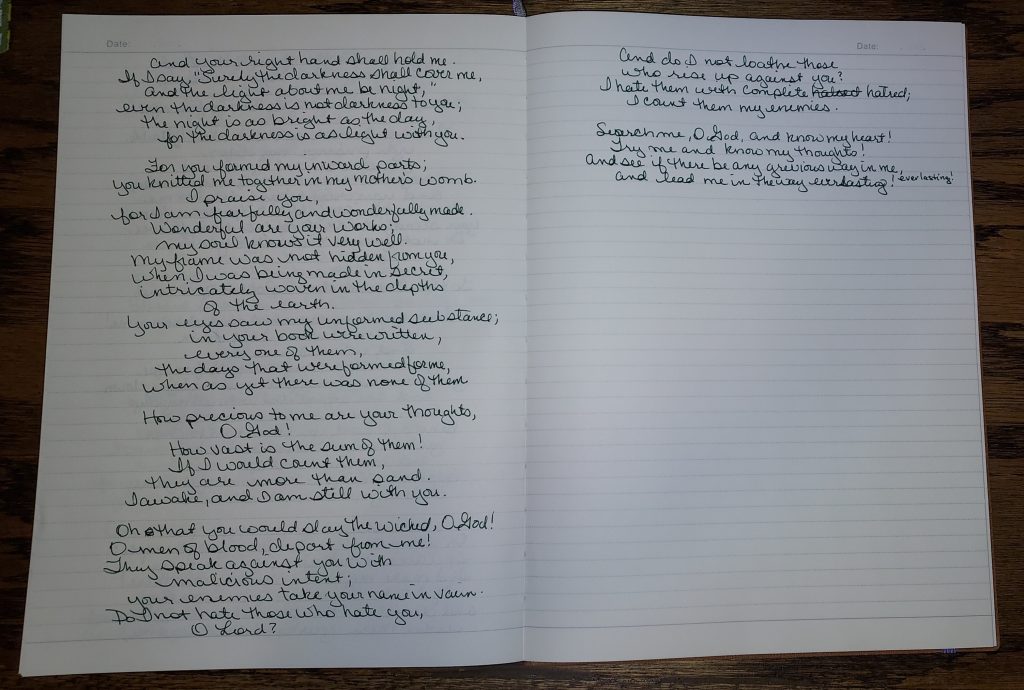 Date:
and your right hand shall hold me.
If I say, "Surely the darkness shall cover me,
and the light about me be night,"
even the darkness is not darkness to you;
the night is as bright as the day,
for the darkness is as light with you.
For you formed my inward parts;
you knitted me together in my mother's womb.
I praise you,
for I am fearfully and wonderfully made.
Wonderful are your works;
my soul knows it very well.
My frame was not hidden from you,
when I was being made in secret,
intricately woven in the depths
of the earth.
Your eyes saw my unformed substance;
in your book were written,
every one of them,
the days that were formed for me,
when as yet there was none of them
How precious to me are your thoughts,
O God!
How vast is the sum of them!
If I would count them,
they are more than sand.
I awake, and I am still with you.
Oh that you would slay the wicked, O God!
O men of blood, depart from me!
They speak against you with
malicious intent;
your enemies take your name in vain.
Do I not hate those who hate you,
O Lord?
Date:
And do I not loathe those
who rise up against you?
I hate them with complete hatred;
I count them my enemies.
Search me, O God, and know my heart!
Try me and know my thoughts!
And see if there be any grevious way in me,
and lead me in the way everlasting! everlasting!